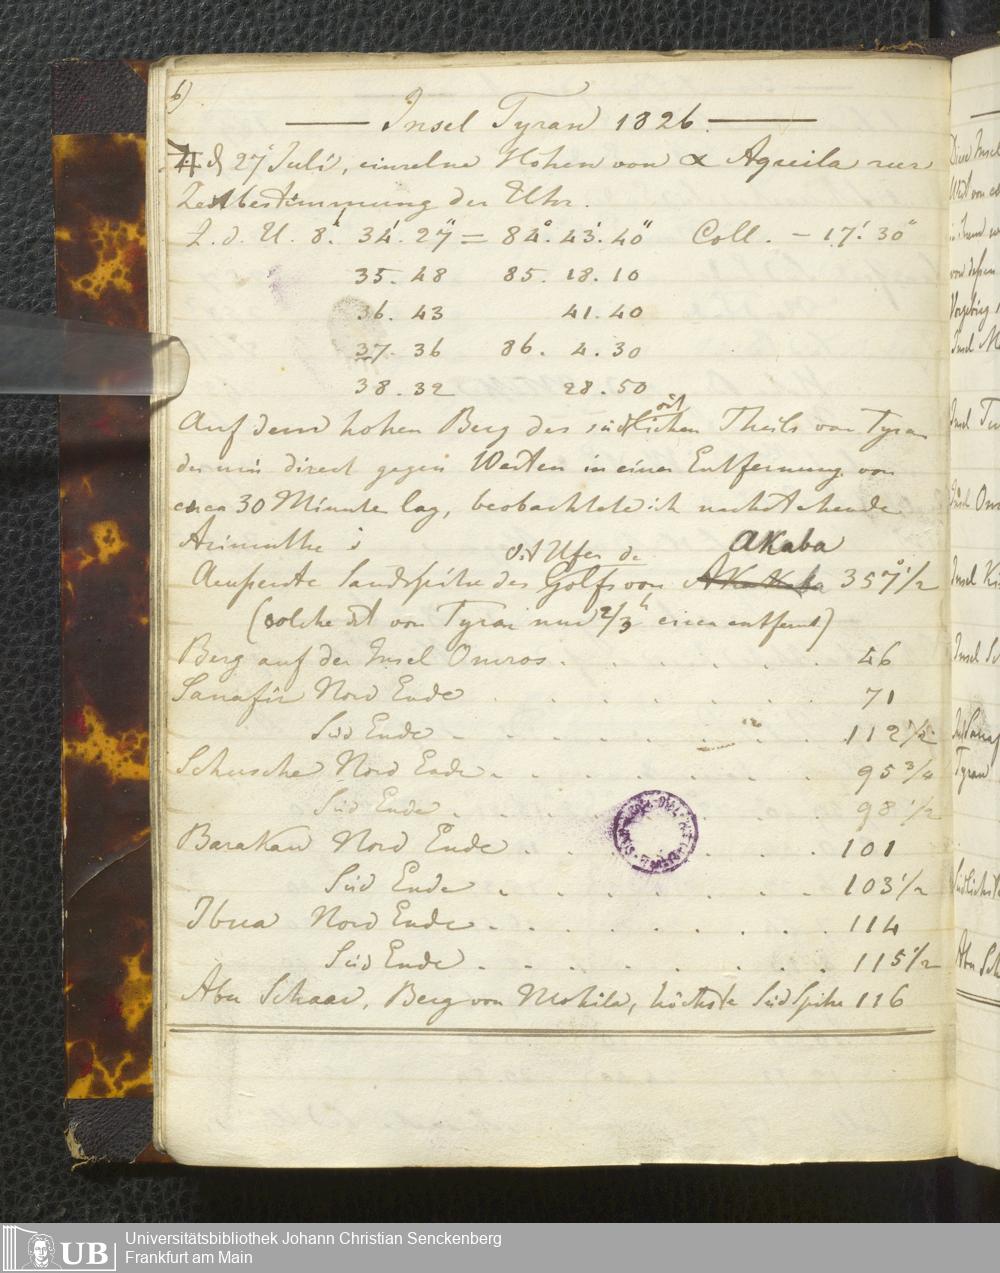 6)
Insel Tyran 1826.
d 27 Juli, einzelne Höhen von α Aquila zur
Zeitbestimmung der Uhr.
Z. d. U. 8. 34. 27 = 84. 43. 40 Coll. - 17. 30
35. 48 85. 18. 10
36. 43 41. 40
37. 36 86. 4. 30
38. 32 28. 50
Auf dem hohen Berg des südöstlichen Theils von Tyran
der mir direct gegen Westen in einer Entfernung von
circa 30 Minute lag, beobachtete ich nachstehende
Azimuthe :
Aeuserste Landspitze des Ost Ufer de Golfs von Akaba 357 1/2
(solche ist von Tyran nur 2/3 h circa entfernt)
Berg auf der Insel Omros . . . . . . . 46
Sanafir Nord Ende . . . . . . . 71
Süd Ende . . . . . . . 112 1/2
Schusche Nord Ende . . . . . . . 95 3/4
Süd Ende . . . . . . . 98 1/2
Barakan Nord Ende . . . . . . . 101
Süd Ende . . . . . . . 103 1/2
Ibua Nord Ende . . . . . . . 114
Süd Ende . . . . . . . 115 1/2
Abu Schaar, Berg von Mohila, höchste Süd Spitze 116
Diese Insel
Insel
Insel
Insel
Insel
Tyran
UB
Universitätsbibliothek Johann Christian Senckenberg
Frankfurt am Main